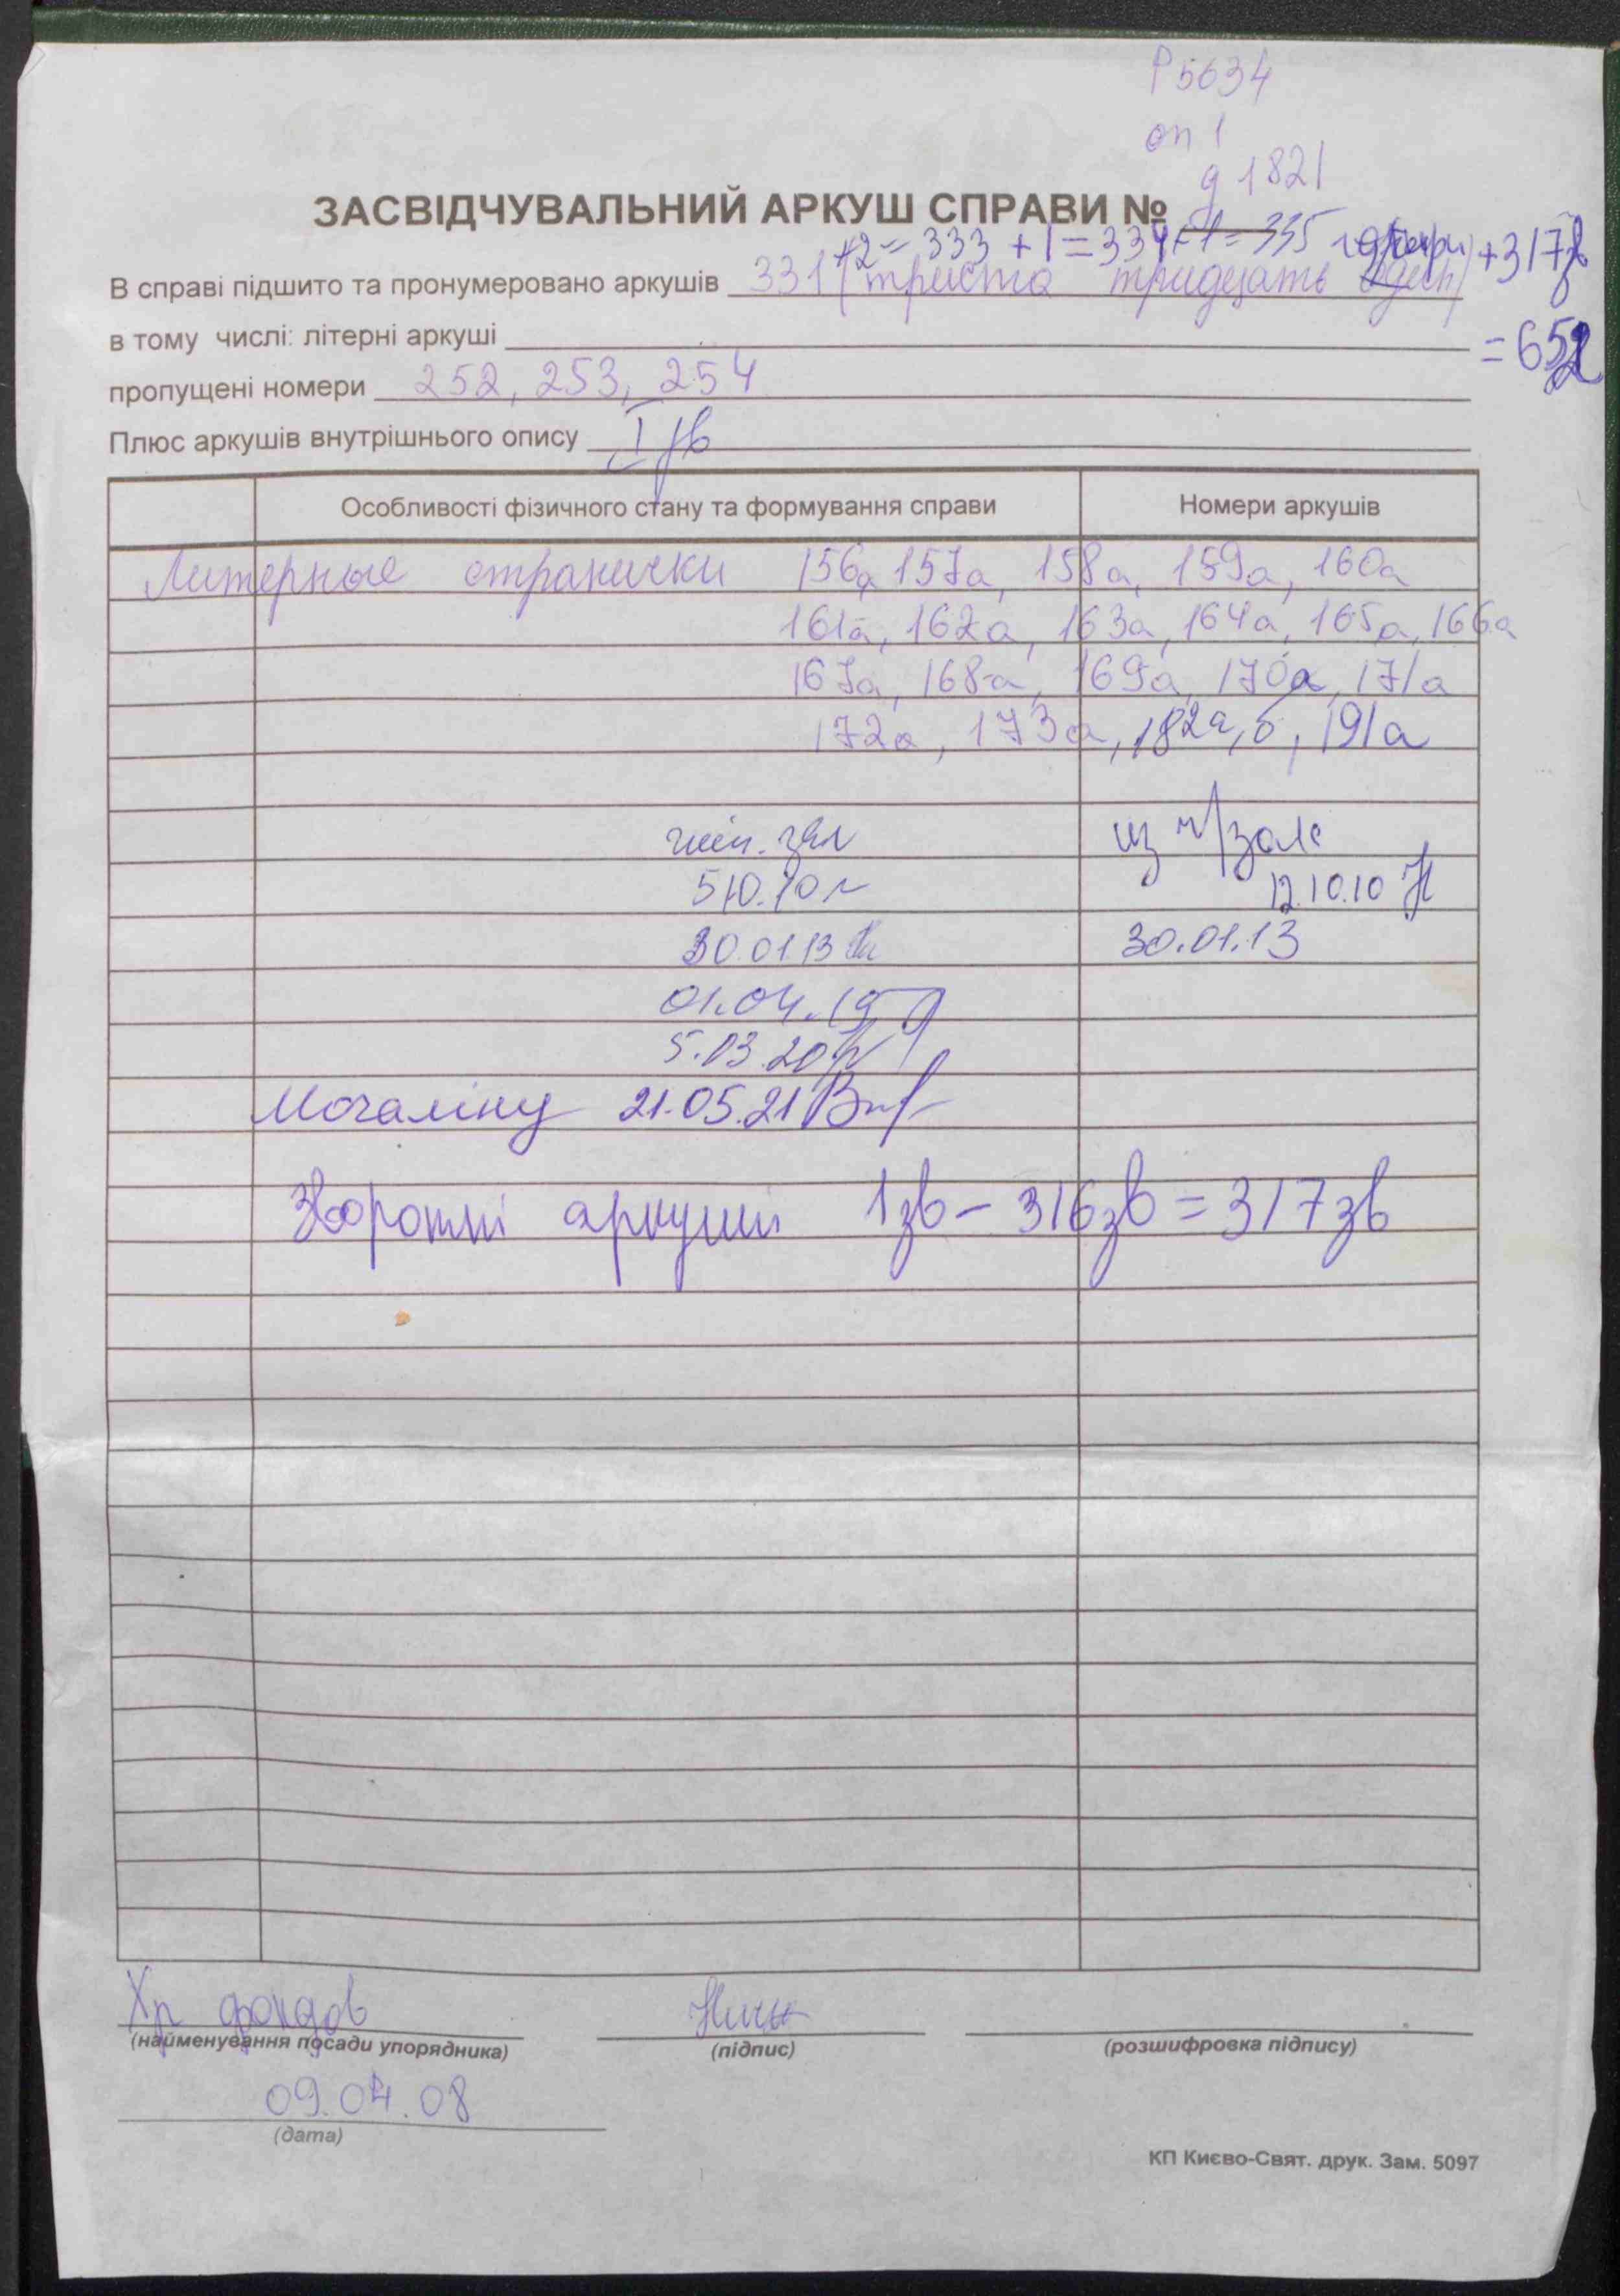 Р5634
оп 1
д 1821
ЗАСВІДЧУВАЛЬНИЙ АРКУШ СПРАВИ №
+2= 333 +1=334+1=335 +317зв
В справі підшито та пронумеровано аркушів 331 (триста тридцать один)
в тому числі: літерні аркуші = 652
пропущені номери 252, 253, 254
Плюс аркушів внутрішнього опису 1 зв
Особливості фізичного стану та формування справи Номери аркушів
Литерные странички 156а 157а, 158а, 159а, 160а
161а, 162а, 163а, 164а, 165а, 166а
167а, 168а, 169а, 170а, 171а
172а, 173а, 182а,б, 191а
чит. зал из ч/зала
5.10.10 12.10.10
30.01.13 30.01.13
01.04.19
5.03.20
Мочаліну 21.05.21
Зворотні аркуши 1зв – 316зв = 317зв
Хр фондов
(найменування посади упорядника) (підпис) (розшифровка підпису)
09.04.08
(дата)
КП Києво-Свят. друк. Зам. 5097